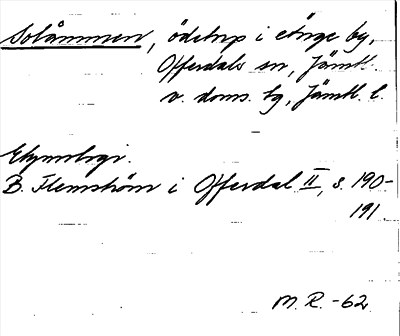 Solåmmen, ödetrp i Änge by,
Offerdals sn, Jämtl.
v. doms. tg, Jämtl. l.
Etymologi.
B. Flemström i Offerdal II, s. 190-
191.
M. R. -62